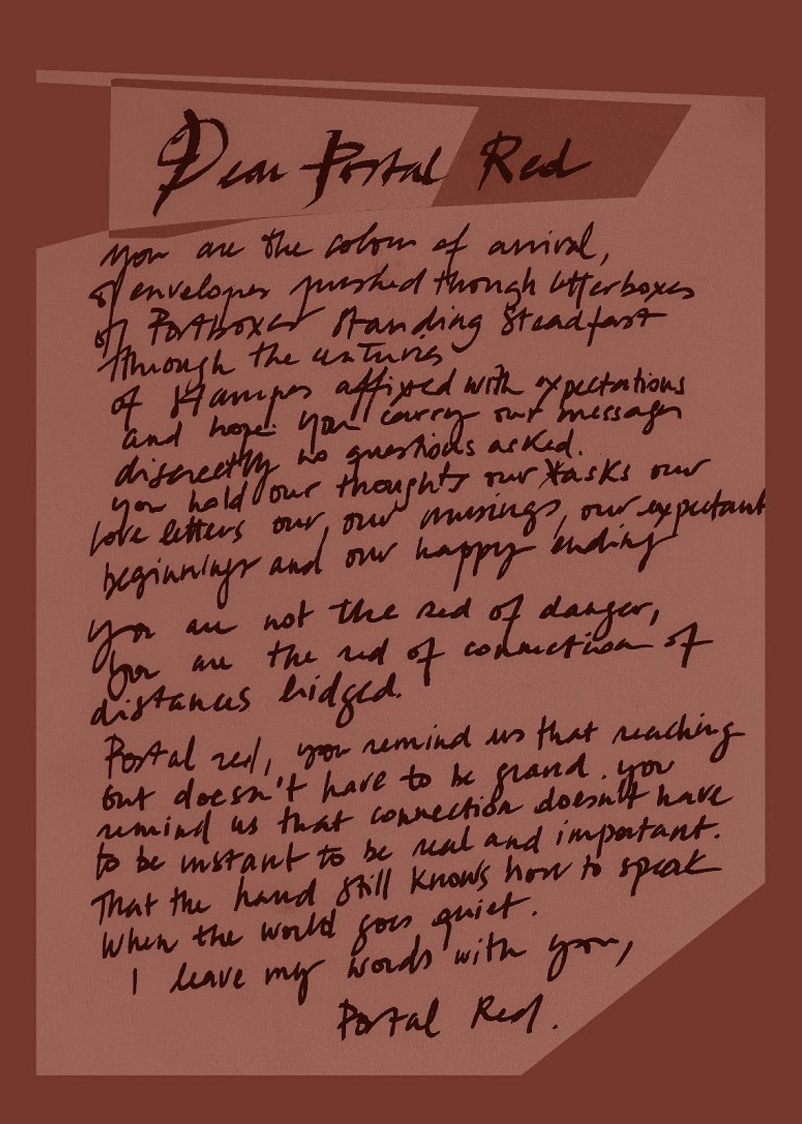 Dear Postal Red
You are the colour of arrival,
of envelopes pushed through letterboxes
of Postboxes standing steadfast
through the centuries
of stamps affixed with expectations
and hope. You carry our messages
discreetly no questions asked.
You hold our thoughts our tasks our
love letters our, our musings, our expectant
beginnings and our happy ending
You are not the red of danger,
You are the red of connection of
distances bridged.
Postal red, you remind us that reaching
out doesn't have to be grand. you
remind us that connection doesn't have
to be instant to be real and important.
That the hand still knows how to speak
When the world goes quiet.
I leave my words with you,
Postal Red.